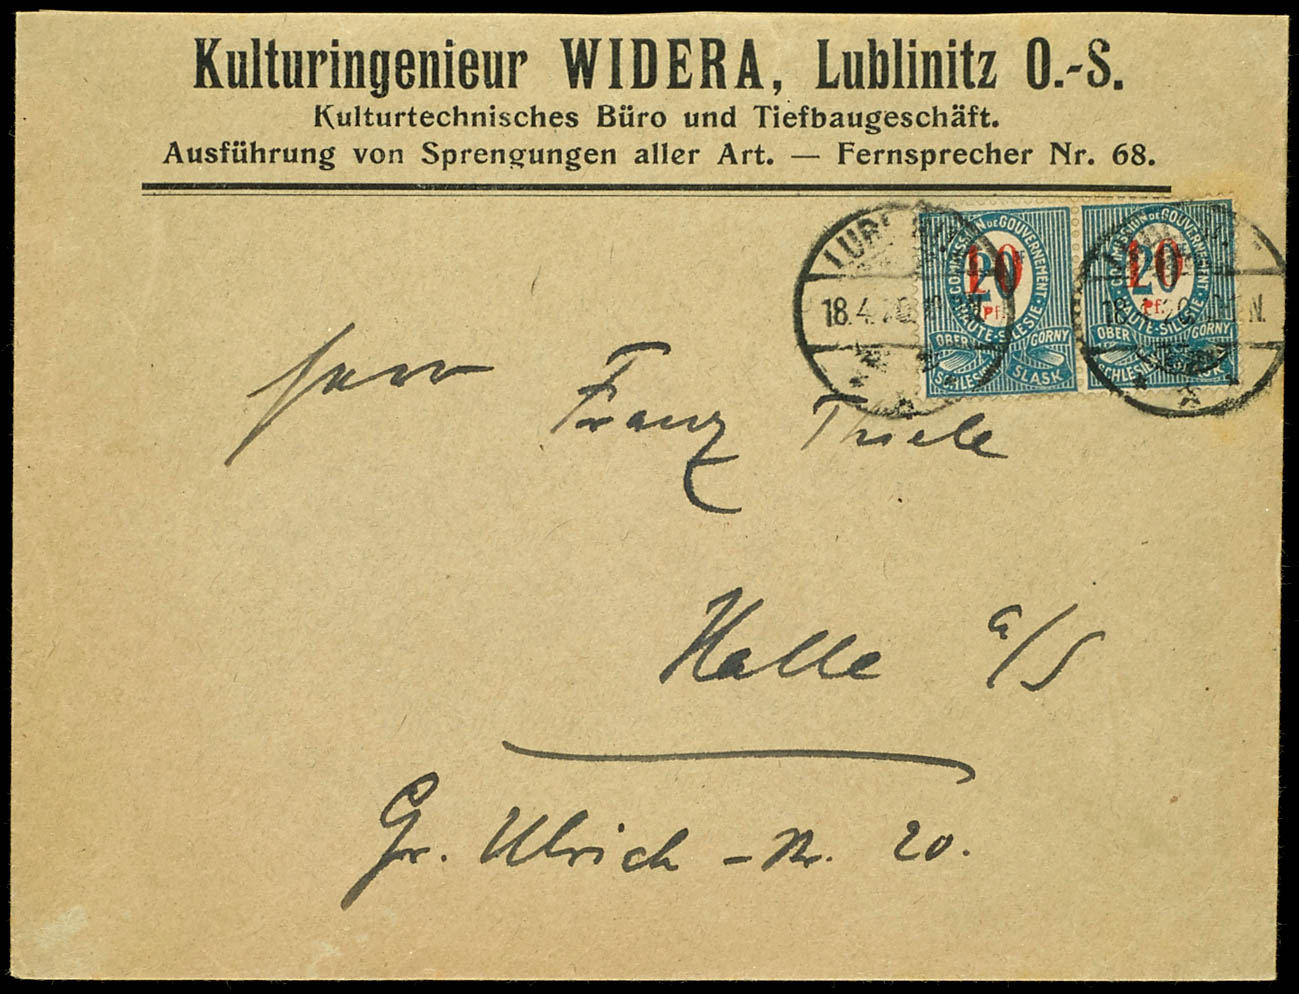 Kulturingenieur WIDERA, Lublinitz O.-S.
Kulturtechnisches Büro und Tiefbaugeschäft.
Ausführung von Sprengungen aller Art. — Fernsprecher Nr. 68.
COMMISSION DE GOUVERNEMENT · HAUTE-SILESIE ·
20
10
Pf.
OBER GORNY
SCHLESIEN SLASK
COMMISSION DE GOUVERNEMENT · HAUTE-SILESIE ·
20
10
Pf.
OBER GORNY
SCHLESIEN
18.4.20
18.4.20
N.
Herr Franz Thiele
Halle a/S
Gr. Ulrich - Nr. 20.